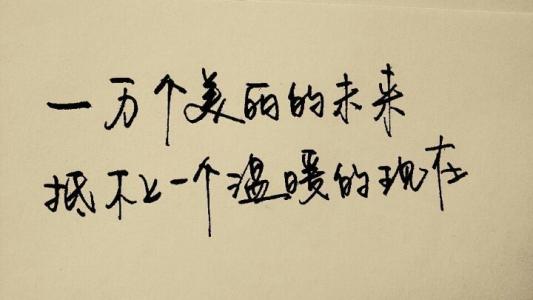 一万个美丽的未来
抵不上一个温暖的现在